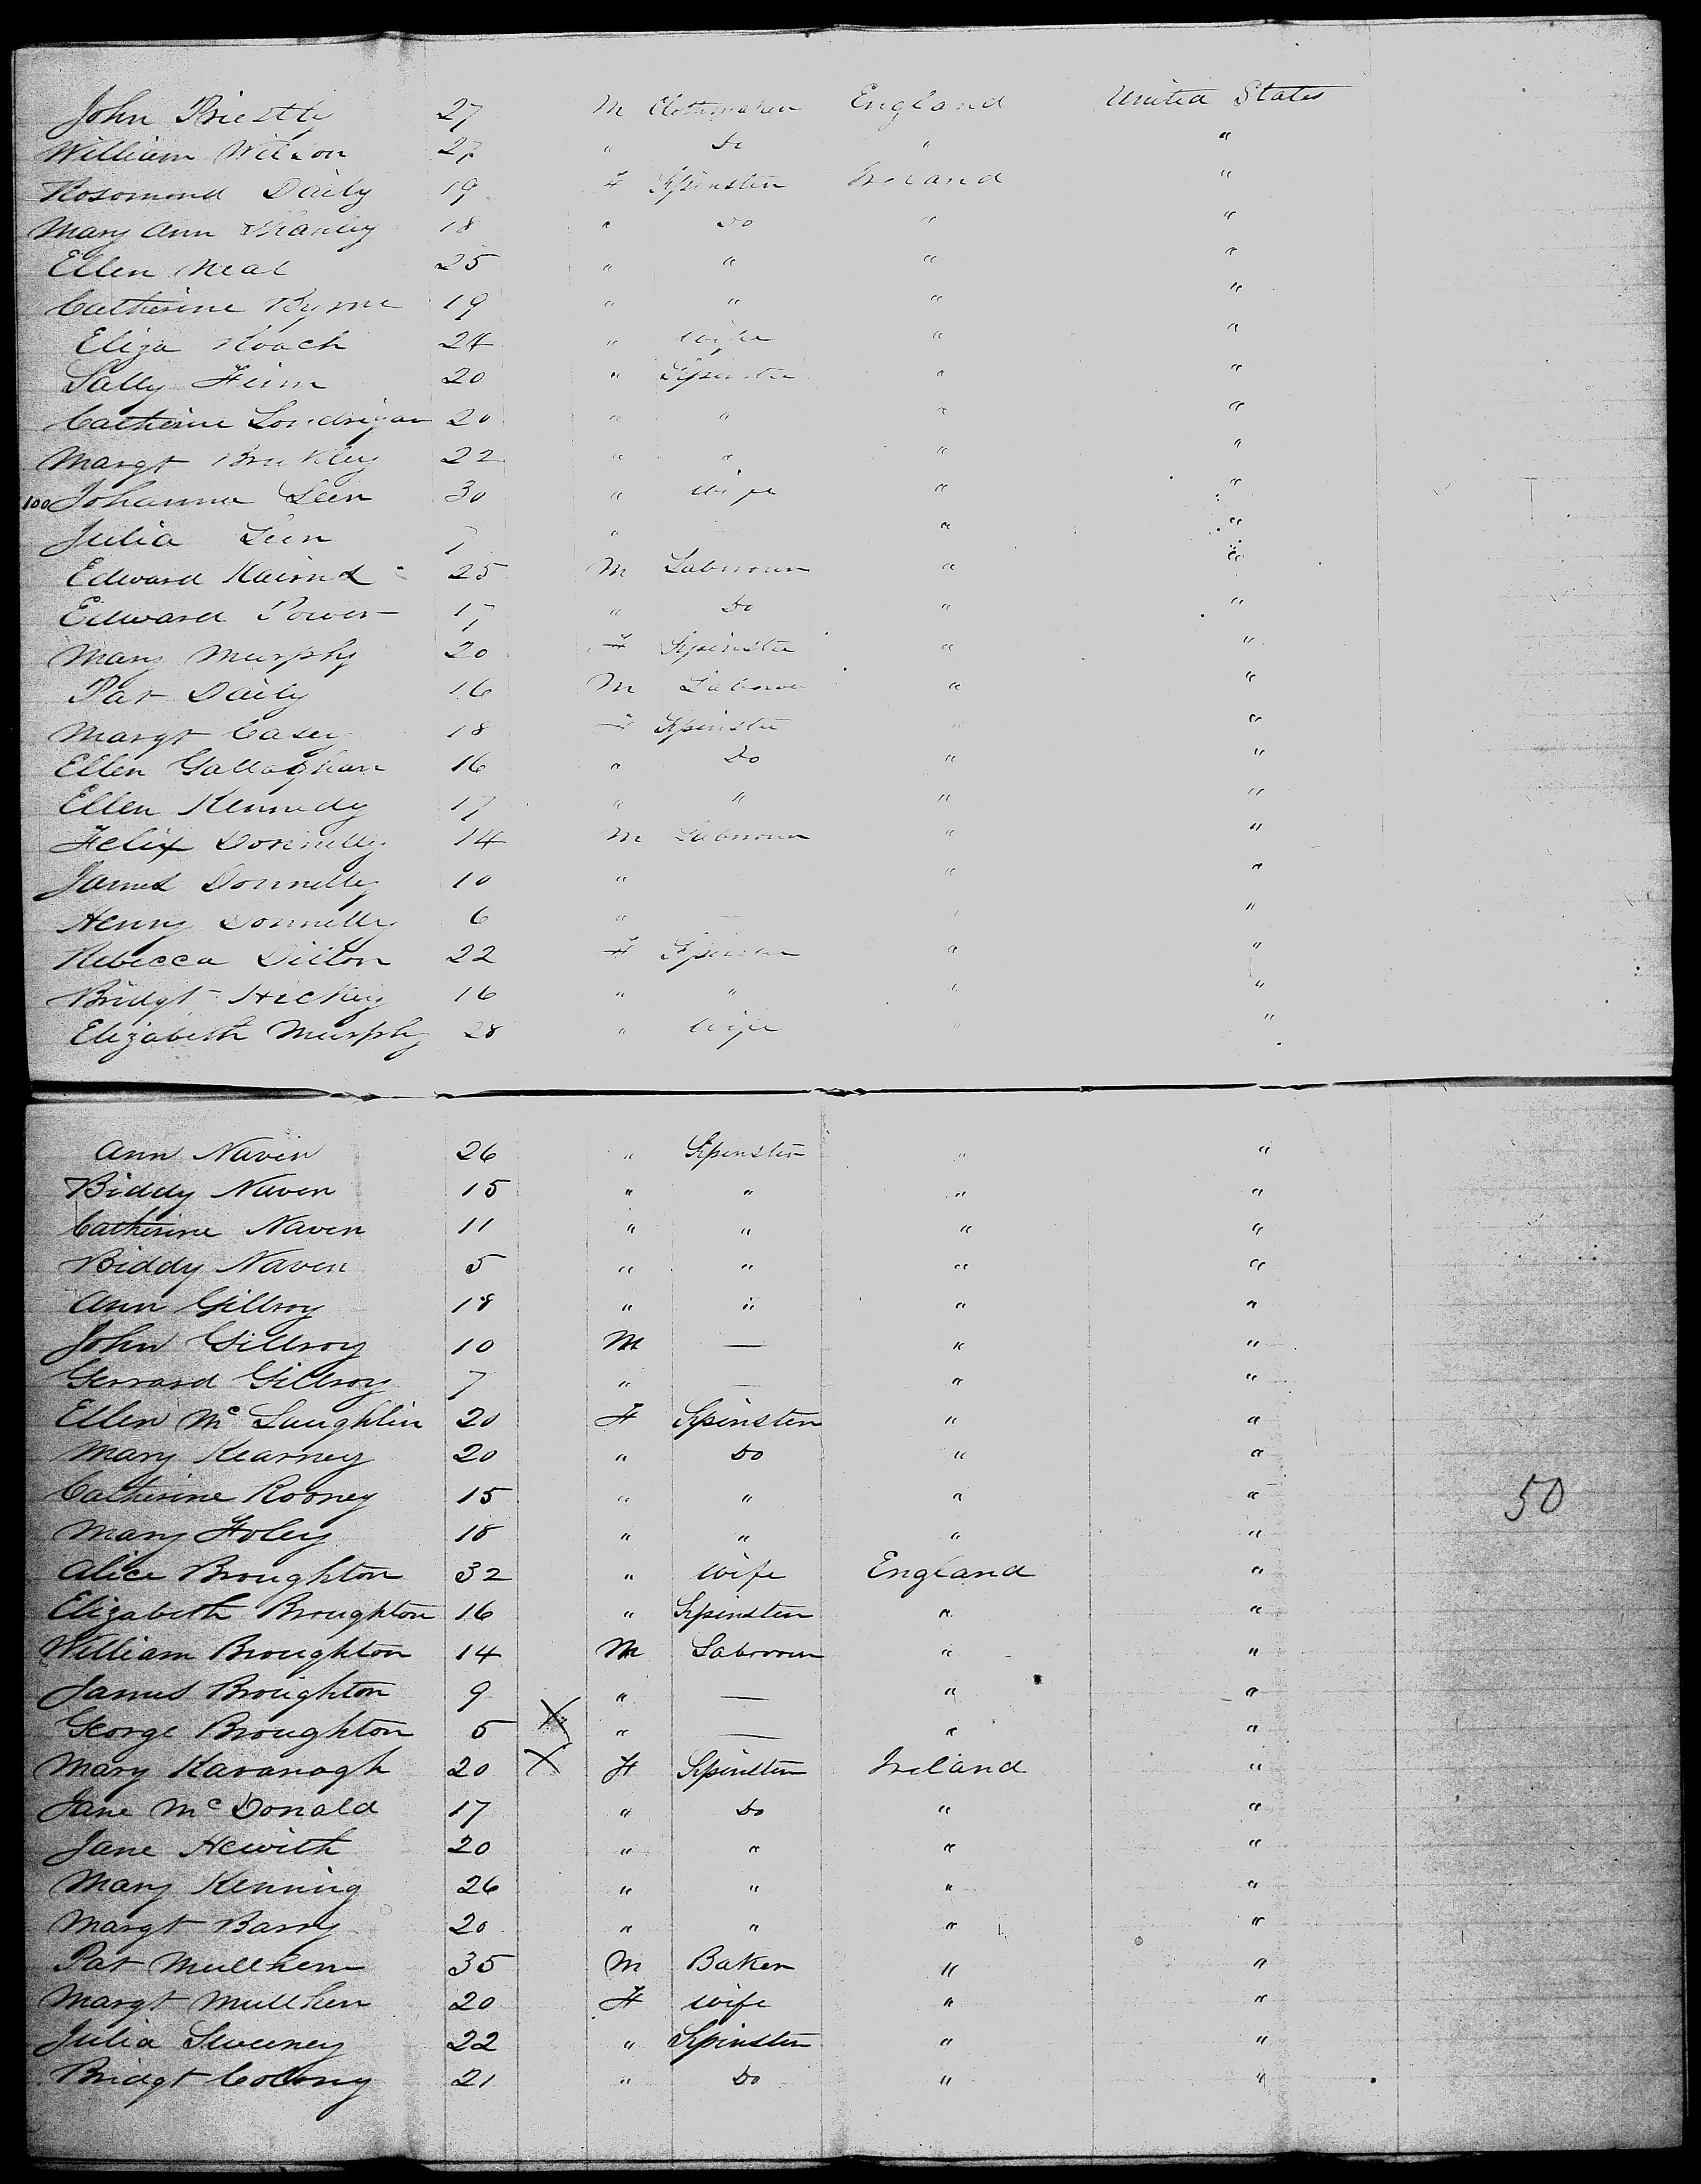 John Priestly 27 M Clothmaker England United States
William Wilson 27 " Do " "
Rosomond Daily 19 F Spinster Ireland "
Mary Ann 18 " Do " "
Ellen Neal 25 " " " "
Catherine Byrne 19 " " " "
Eliza Roach 24 " Wife " "
Sally 20 " Spinster " "
Catherine Londrigan 20 " " " "
Margt 22 " " " "
100 Johanna Leen 30 " Wife " "
Julia Leen 7 " " "
Edward 25 M Labourer " "
Edward Power 17 " Do " "
Mary Murphy 20 F Spinster " "
Pat Daily 16 M Labourer " "
Margt Casey 18 F Spinster " "
Ellen Gallaghan 16 " Do " "
Ellen Kennedy 17 " " " "
Felix Donnelly 14 M Labourer " "
James Donnelly 10 " " "
Henry Donnelly 6 " — " "
Rebecca Dillon 22 F Spinster " "
Bridgt Hickey 16 " " " "
Elizabeth Murphy 28 " Wife " "
Ann Naven 26 " Spinster " "
Biddy Naven 15 " " " "
Catherine Naven 11 " " " "
Biddy Naven 5 " " " "
Ann Gillroy 18 " " " "
John Gillroy 10 M — " "
Gerrard Gillroy 7 " — " "
Ellen McLaughlin 20 F Spinster " "
Mary Kearney 20 " Do " "
Catherine Rooney 15 " " " " 50
Mary Foley 18 " " " "
Alice Broughton 32 " Wife England "
Elizabeth Broughton 16 " Spinster " "
William Broughton 14 M Labourer " "
James Broughton 9 " — " "
George Broughton 5 X " — " "
Mary Kavanagh 20 X F Spinster Ireland "
Jane McDonald 17 " Do " "
Jane Hewith 20 " " " "
Mary Kenning 26 " " " "
Margt Barry 20 " " " "
Pat Mullhern 35 M Baker " "
Margt Mullhern 20 F Wife " "
Julia Sweeney 22 " Spinster " "
Bridgt 21 " Do " "